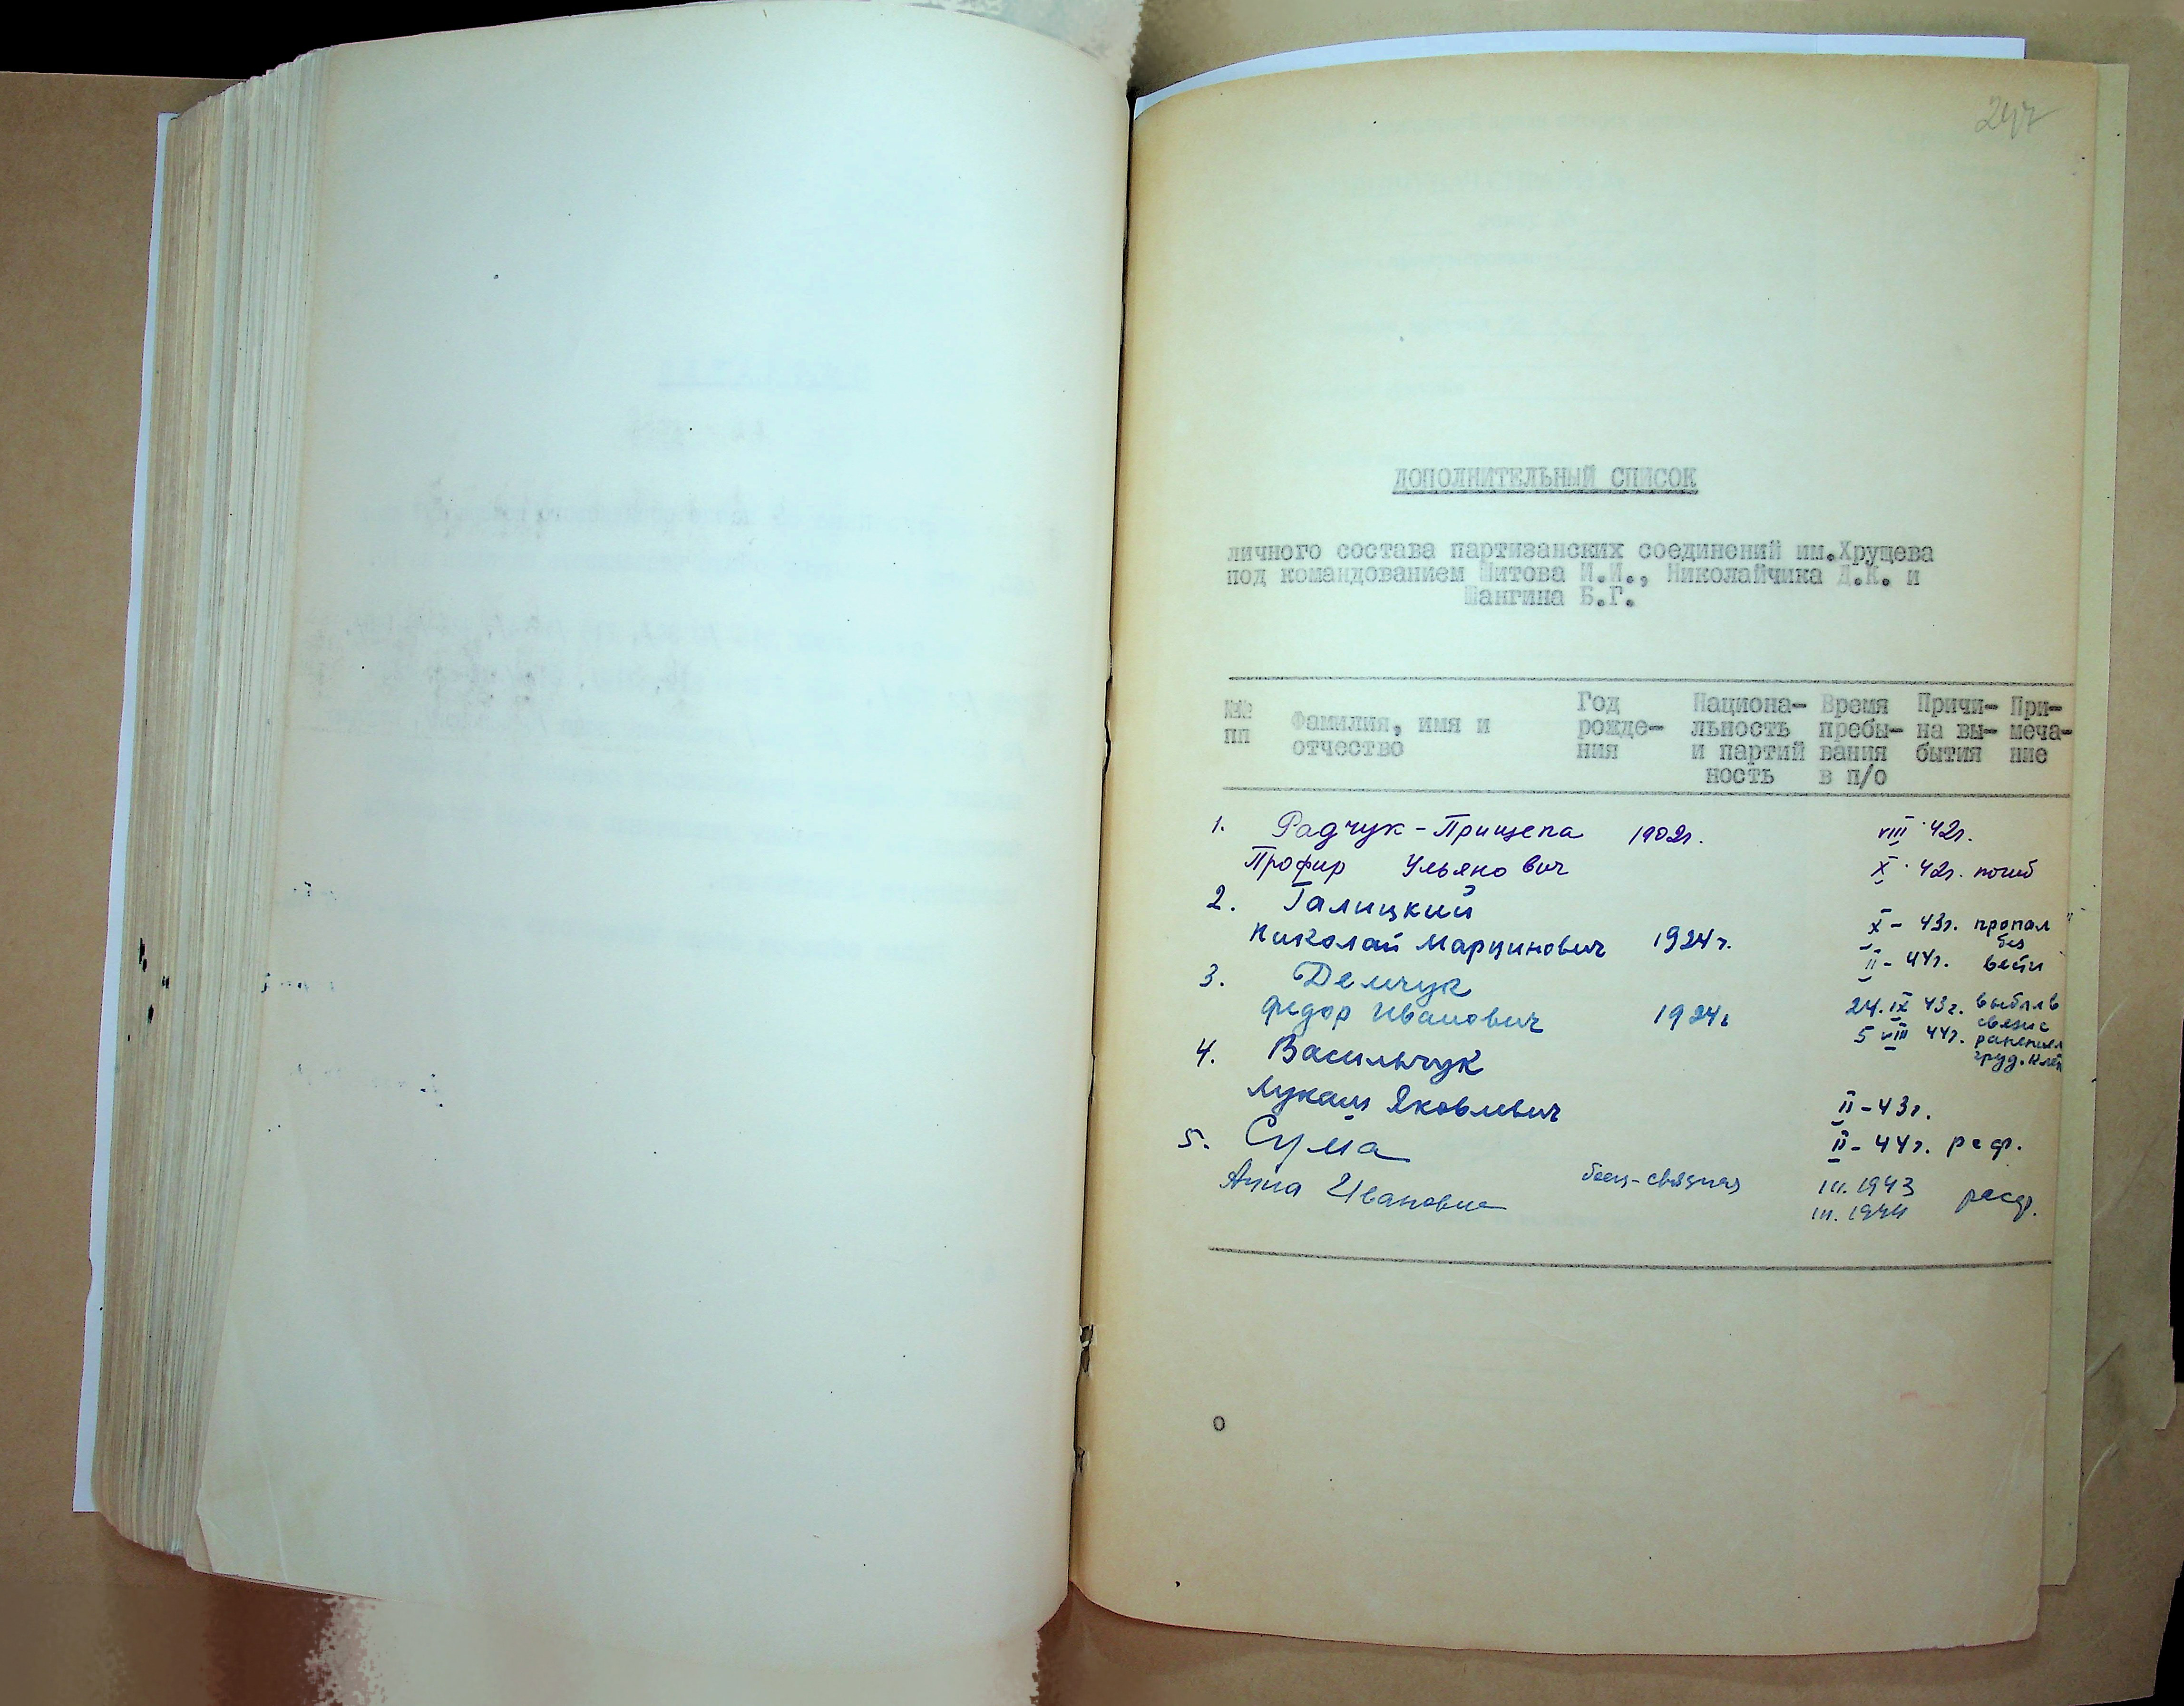 247
ДОПОЛНИТЕЛЬНЫЙ СПИСОК
личного состава партизанских соединений им.Хрущева
под командованием Шитова И.И., Николайчика Д.К. и
Шангина Б.Г.
№№ пп
Фамилия, имя и отчество
Год рожде- ния
Национа- льность и партий ность
Время пребы- вания в п/о
Причи- на вы- бытия
При- меча- ние
1. Радчук-Прищепа 1902г. VIII 42г.
Профир Ульянович X 42г. погиб
2. Галицкий
Николай Марцинович 1924г. X - 43г. пропал без
II - 44г. вести
3. Демчук
Федор Иванович 1924г 24.IX 43г. выбыл в связи с
5 VIII 44г. ранением груд. клет
4. Васильчук
Лукаш Яковлевич II - 43г.
II - 44г. расф.
5. Сума
Анна Ивановна связная III.1943
III.1944 расф.